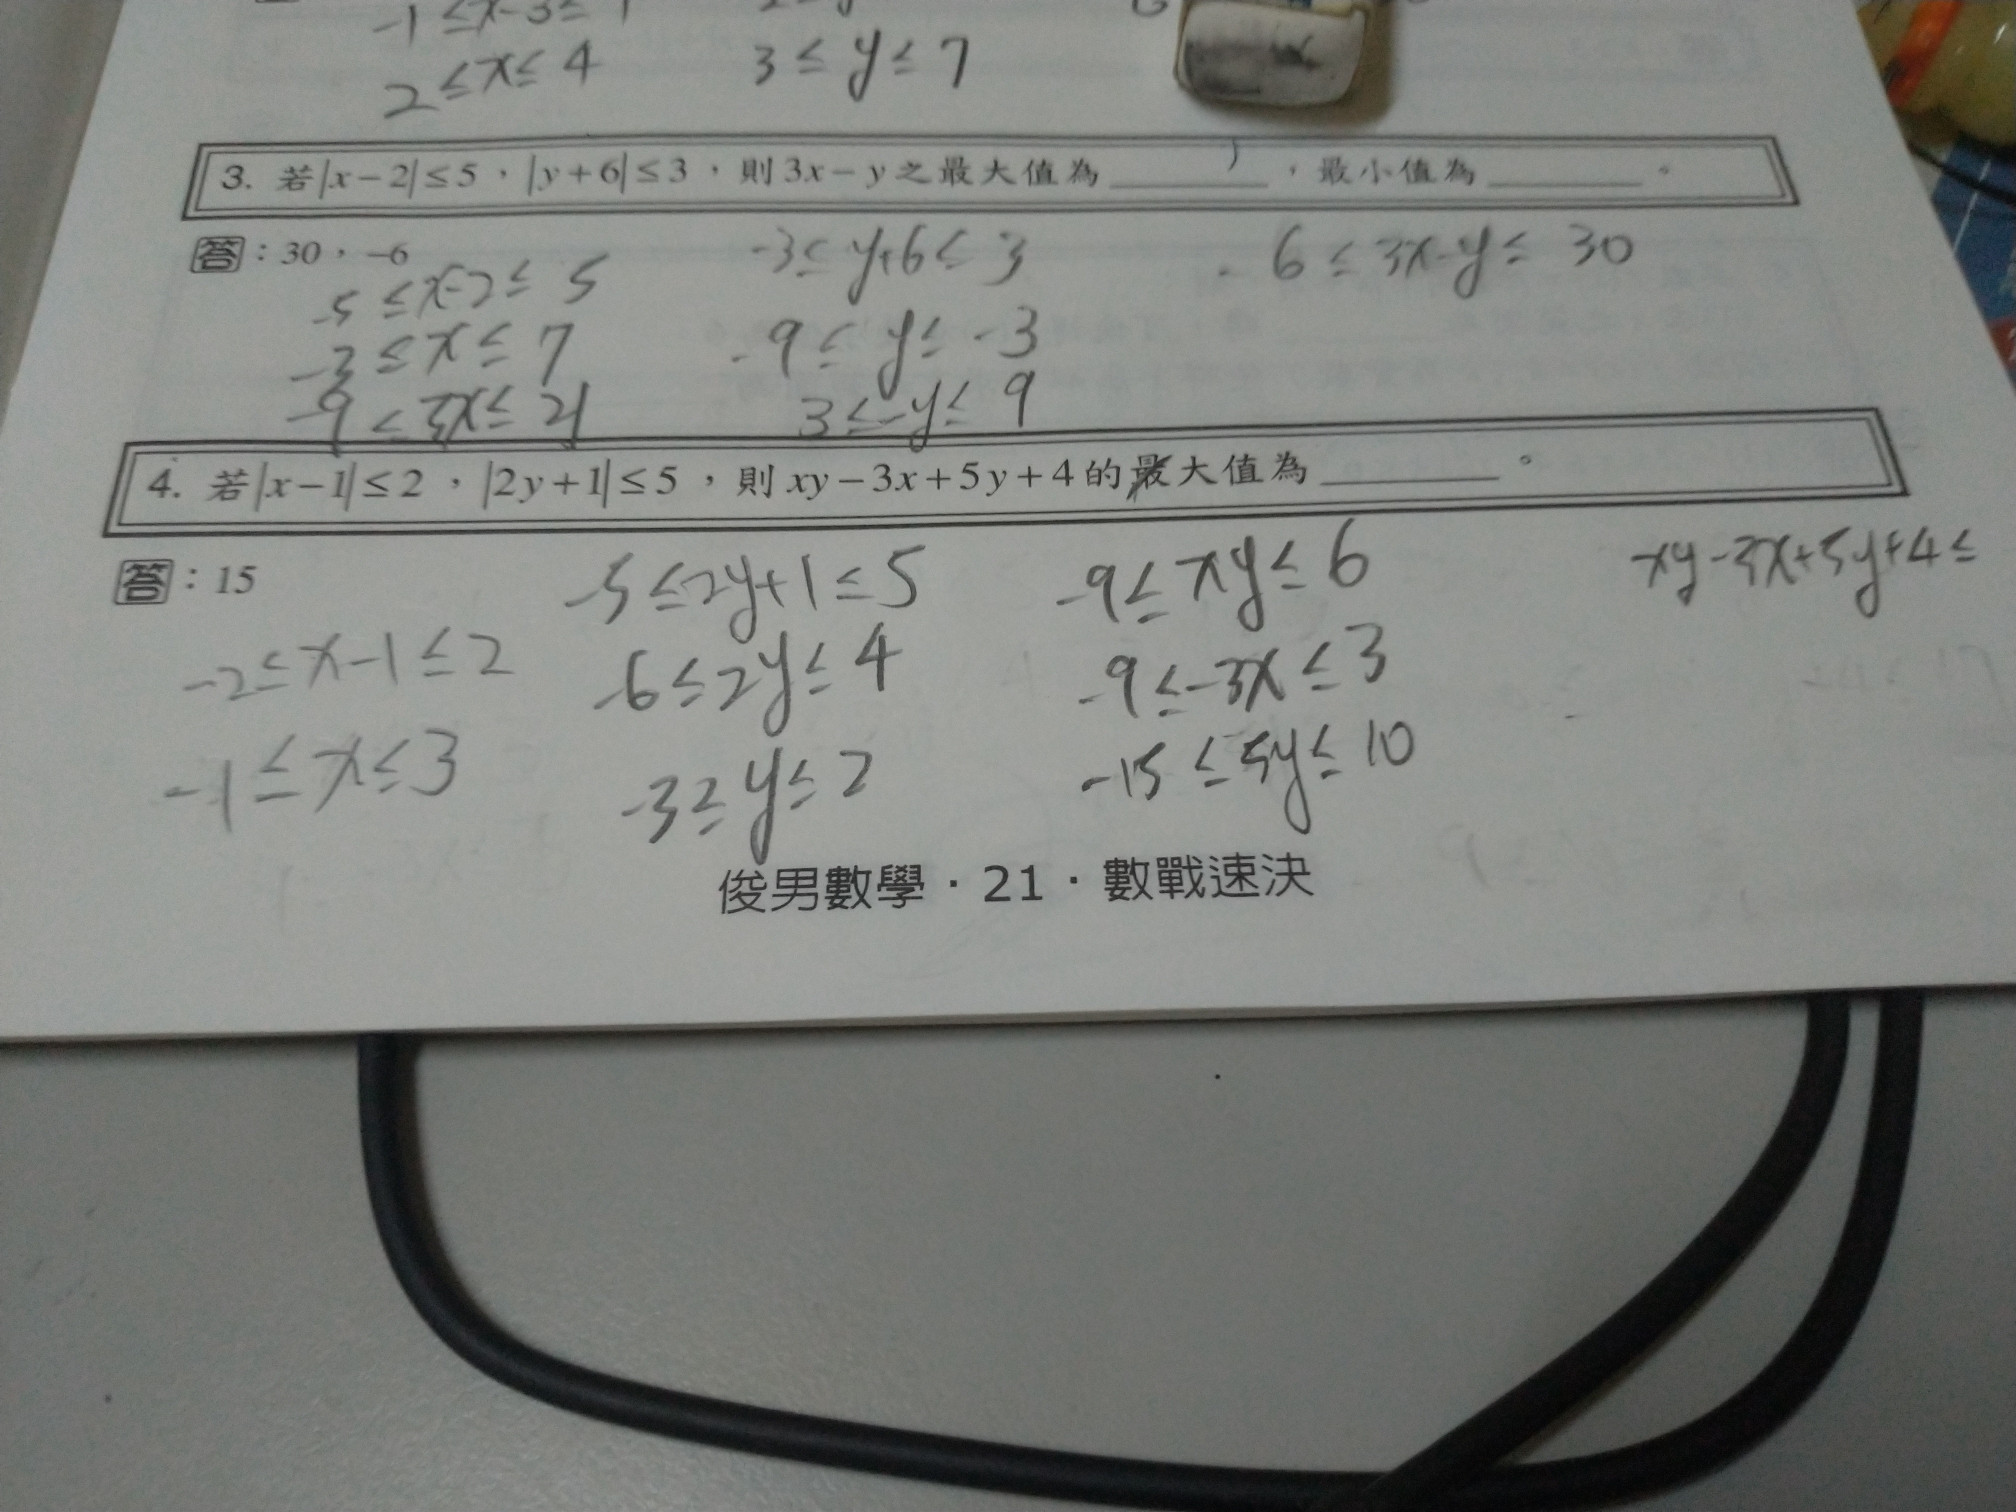 -1 ≤ x-3 ≤ 1
2 ≤ x ≤ 4
3 ≤ y ≤ 7
3. 若|x-2|≤5，|y+6|≤3，則3x-y之最大值為________，最小值為________。
答：30，-6
-5 ≤ x-2 ≤ 5
-3 ≤ x ≤ 7
-9 ≤ 3x ≤ 21
-3 ≤ y+6 ≤ 3
-9 ≤ y ≤ -3
3 ≤ -y ≤ 9
-6 ≤ 3x-y ≤ 30
4. 若|x-1|≤2，|2y+1|≤5，則xy-3x+5y+4的最大值為________。
答：15
-2 ≤ x-1 ≤ 2
-1 ≤ x ≤ 3
-5 ≤ 2y+1 ≤ 5
-6 ≤ 2y ≤ 4
-3 ≥ y ≤ 2
-9 ≤ xy ≤ 6
-9 ≤ -3x ≤ 3
-15 ≤ 5y ≤ 10
xy-3x+5y+4 ≤
俊男數學·21·數戰速決